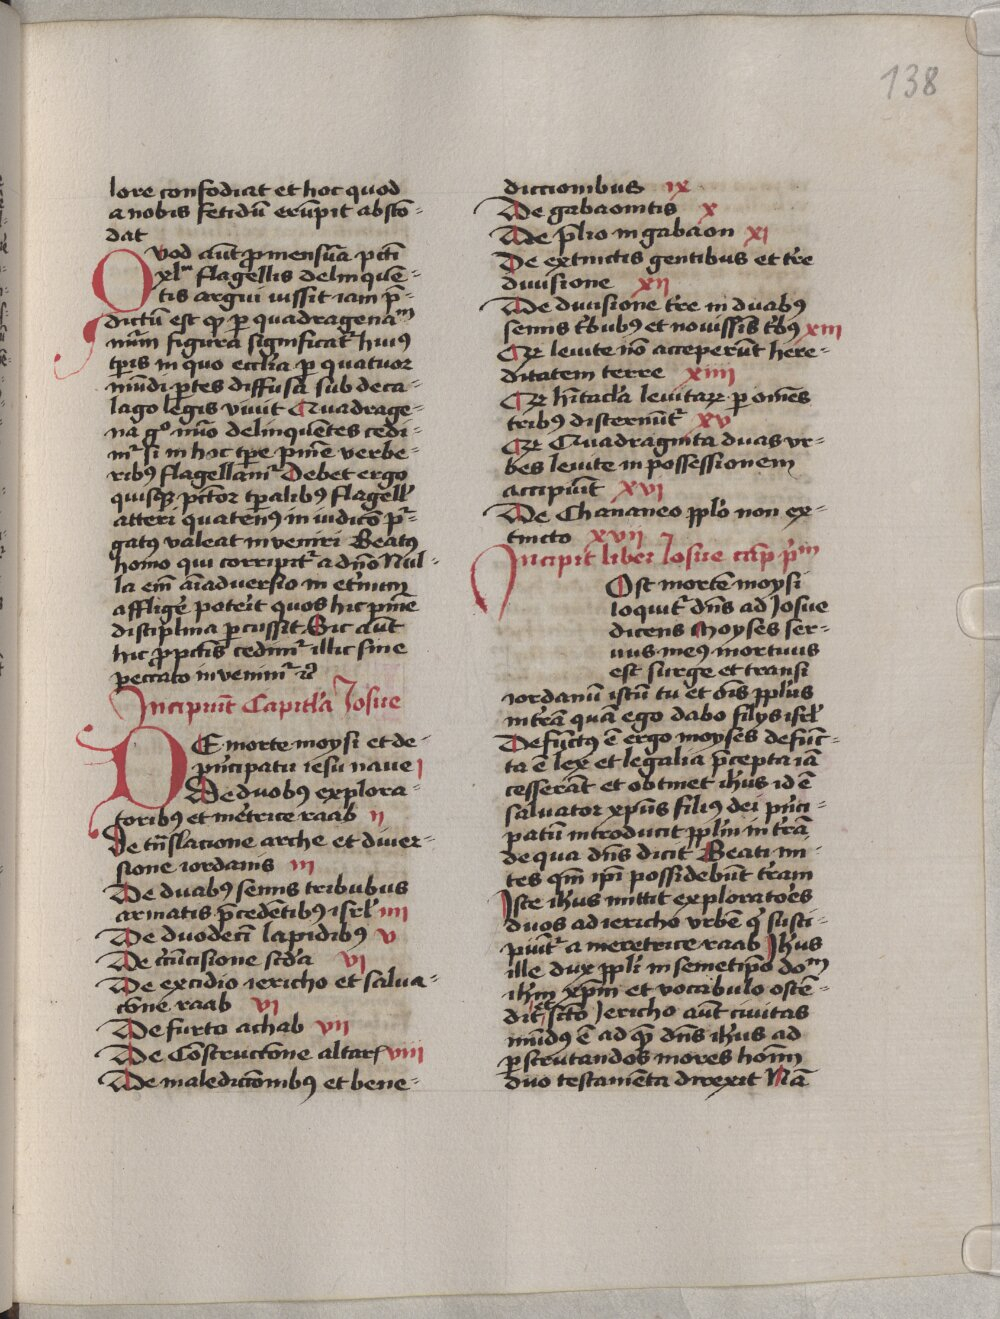 138
lore confodiat et hoc quod
a nobis fetidũ erũpit abscõ-
dat
Quod aũt p mensurã pcti
xlᵐ flagellis delinquẽ-
tis argui iussit iam p̃-
dictũ est qꝫ ꝑ quadragenaᵐ
nũm figura significat᷑ huiꝰ
tp̃is in quo eccl̃ia ꝑ quatuor
mũdi ꝑtes diffusa sub deca-
lago legis viuit Quadrage-
na gᵒ nũo delinquẽtes cedi-
mᷣ si in hic tpe p̃nie verbe-
ribꝰ flagellamᷣ Debet ergo
quisqꝫ pctor tꝑalibꝰ flagell᷑
atteri quatenꝰ in iudicõ pᷣ-
gatꝰ valeat inveniri Beatꝰ
homo qui corripitᷣ a dño Nul-
la em̃ aĩaduersio in et̃num
afflige᷑ poterit quos hic p̃nie
disciplina ꝑcussit Sic aũt
hic ꝓ pctis cedimᷣ illic sine
peccato invenimᷣ ⁊c̃
Incipiũt Capitl̃a Josue
DE morte moysi et de
p̃ncipatu iesu naue i
De duobus explora-
toribꝰ et metrice raab ii
De tñslacione arche et diuer-
sione iordanis iii
De duabꝰ semis tribubus
armatis p̃cedẽtibꝰ isrl᷑ iiii
De duodeci lapidibꝰ v
De cr̃ucisione scd̃a vi
De excidio iericho et salua-
cõne raab vi
De furto achab vii
De Cõstructõne altarꝭ viiii
De maledictõnibꝰ et bene-
diccionibus ix
De gabaonitis x
De p̃lio in gabaon xi
De extinctis gentibus et tr̃e
diuisione xii
De diuisione tr̃e in duabꝰ
semis t̃bubꝰ et nouissĩs t̃bꝰ xiii
Qꝛ leuite nõ acceperũt here-
ditatem terre xiiii
Qꝛ hĩtacl̃a leuitaꝝ ꝑ om̃es
tribꝰ disternũtᷣ xv
Qꝛ Quadraginta duas vr-
bes leuite in possessionem
accipiũt xvi
De Chananeo ppl̃o non ex-
tincto xvii
Incipit liber Josue cap̃ p̃ᵐ
Ost mortẽ moysi
loquitᷣ dñs ad Josue
dicens Moyses ser-
uus meꝰ mortuus
est surge et transi
iordanũ istũ tu et õis ppl̃us
in tr̃a quã ego dabo filys isrl᷑
Defũctꝰ ẽ ergo moyses defũc-
ta ẽ lex et legalia p̃cepta iã
cesserãt et obtinet ih̃us id ẽ
saluator xp̃us filiꝰ dei p̃nci-
patũ introducit ppl̃m in tr̃ã
de qua dñs dicit Beati mi-
tes qm̃ ip̃i possidebũt tr̃am
Iste ih̃us mittit exploratoes
duos ad iericho vrbẽ q᷑ susci-
piũtᷣ a meretrice raab Ih̃us
ille dux ppl̃i in semetip̃o doᵐ
ih̃m xp̃m et vocabulo ostẽ-
dit et fcõ Jericho aũt ciuitas
mũdꝰ ẽ ad q̃ dñs ih̃us ad
ꝑscrutandos mores hõim
duo testamẽta direxit Nã